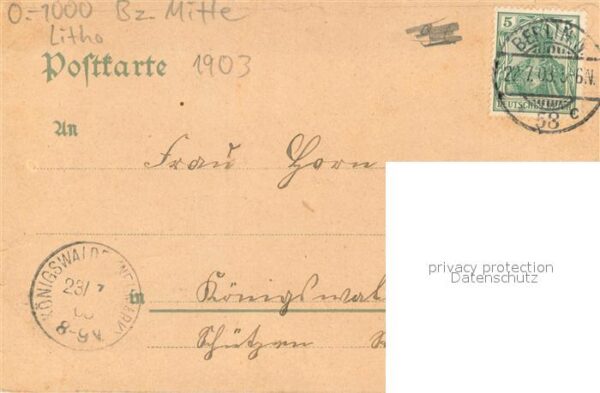 O-1000 Bz. Mitte
Litho
Postkarte 1903
5
BERLIN N.
22.7.03. 5-6N.
DEUTSCHES REICH
58 c
An
Frau Horn
privacy protection
Datenschutz
KÖNIGSWALDE (NEUMARK)
23/7
03
in Königswal
Schützen